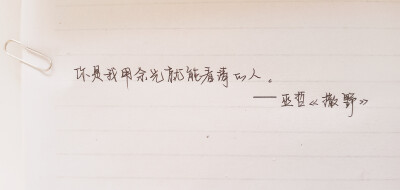 你是我用余光就能看清的人。
——巫哲《撒野》